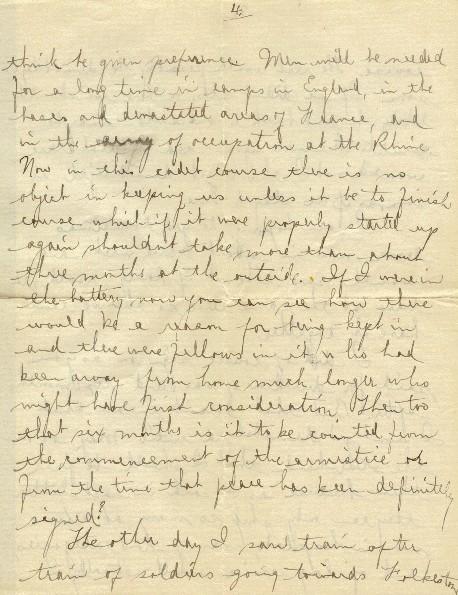 4.
think be given preference. Men will be needed
for a long time in camps in England, in the
bases and devastated areas of France, and
in the army of occupation at the Rhine.
Now in this cadet course there is no
object in keeping us unless it be to finish
course which if it were properly started up
again shouldn't take more than about
three months at the outside. If I were in
the battery now you can see how there
would be a reason for being kept in
and there were fellows in it who had
been away from home much longer who
might have first consideration. Then too
that six months is it to be counted from
the commencement of the armistice or
from the time that peace has been definitely
signed?
The other day I saw train after
train of soldiers going towards Folkestone